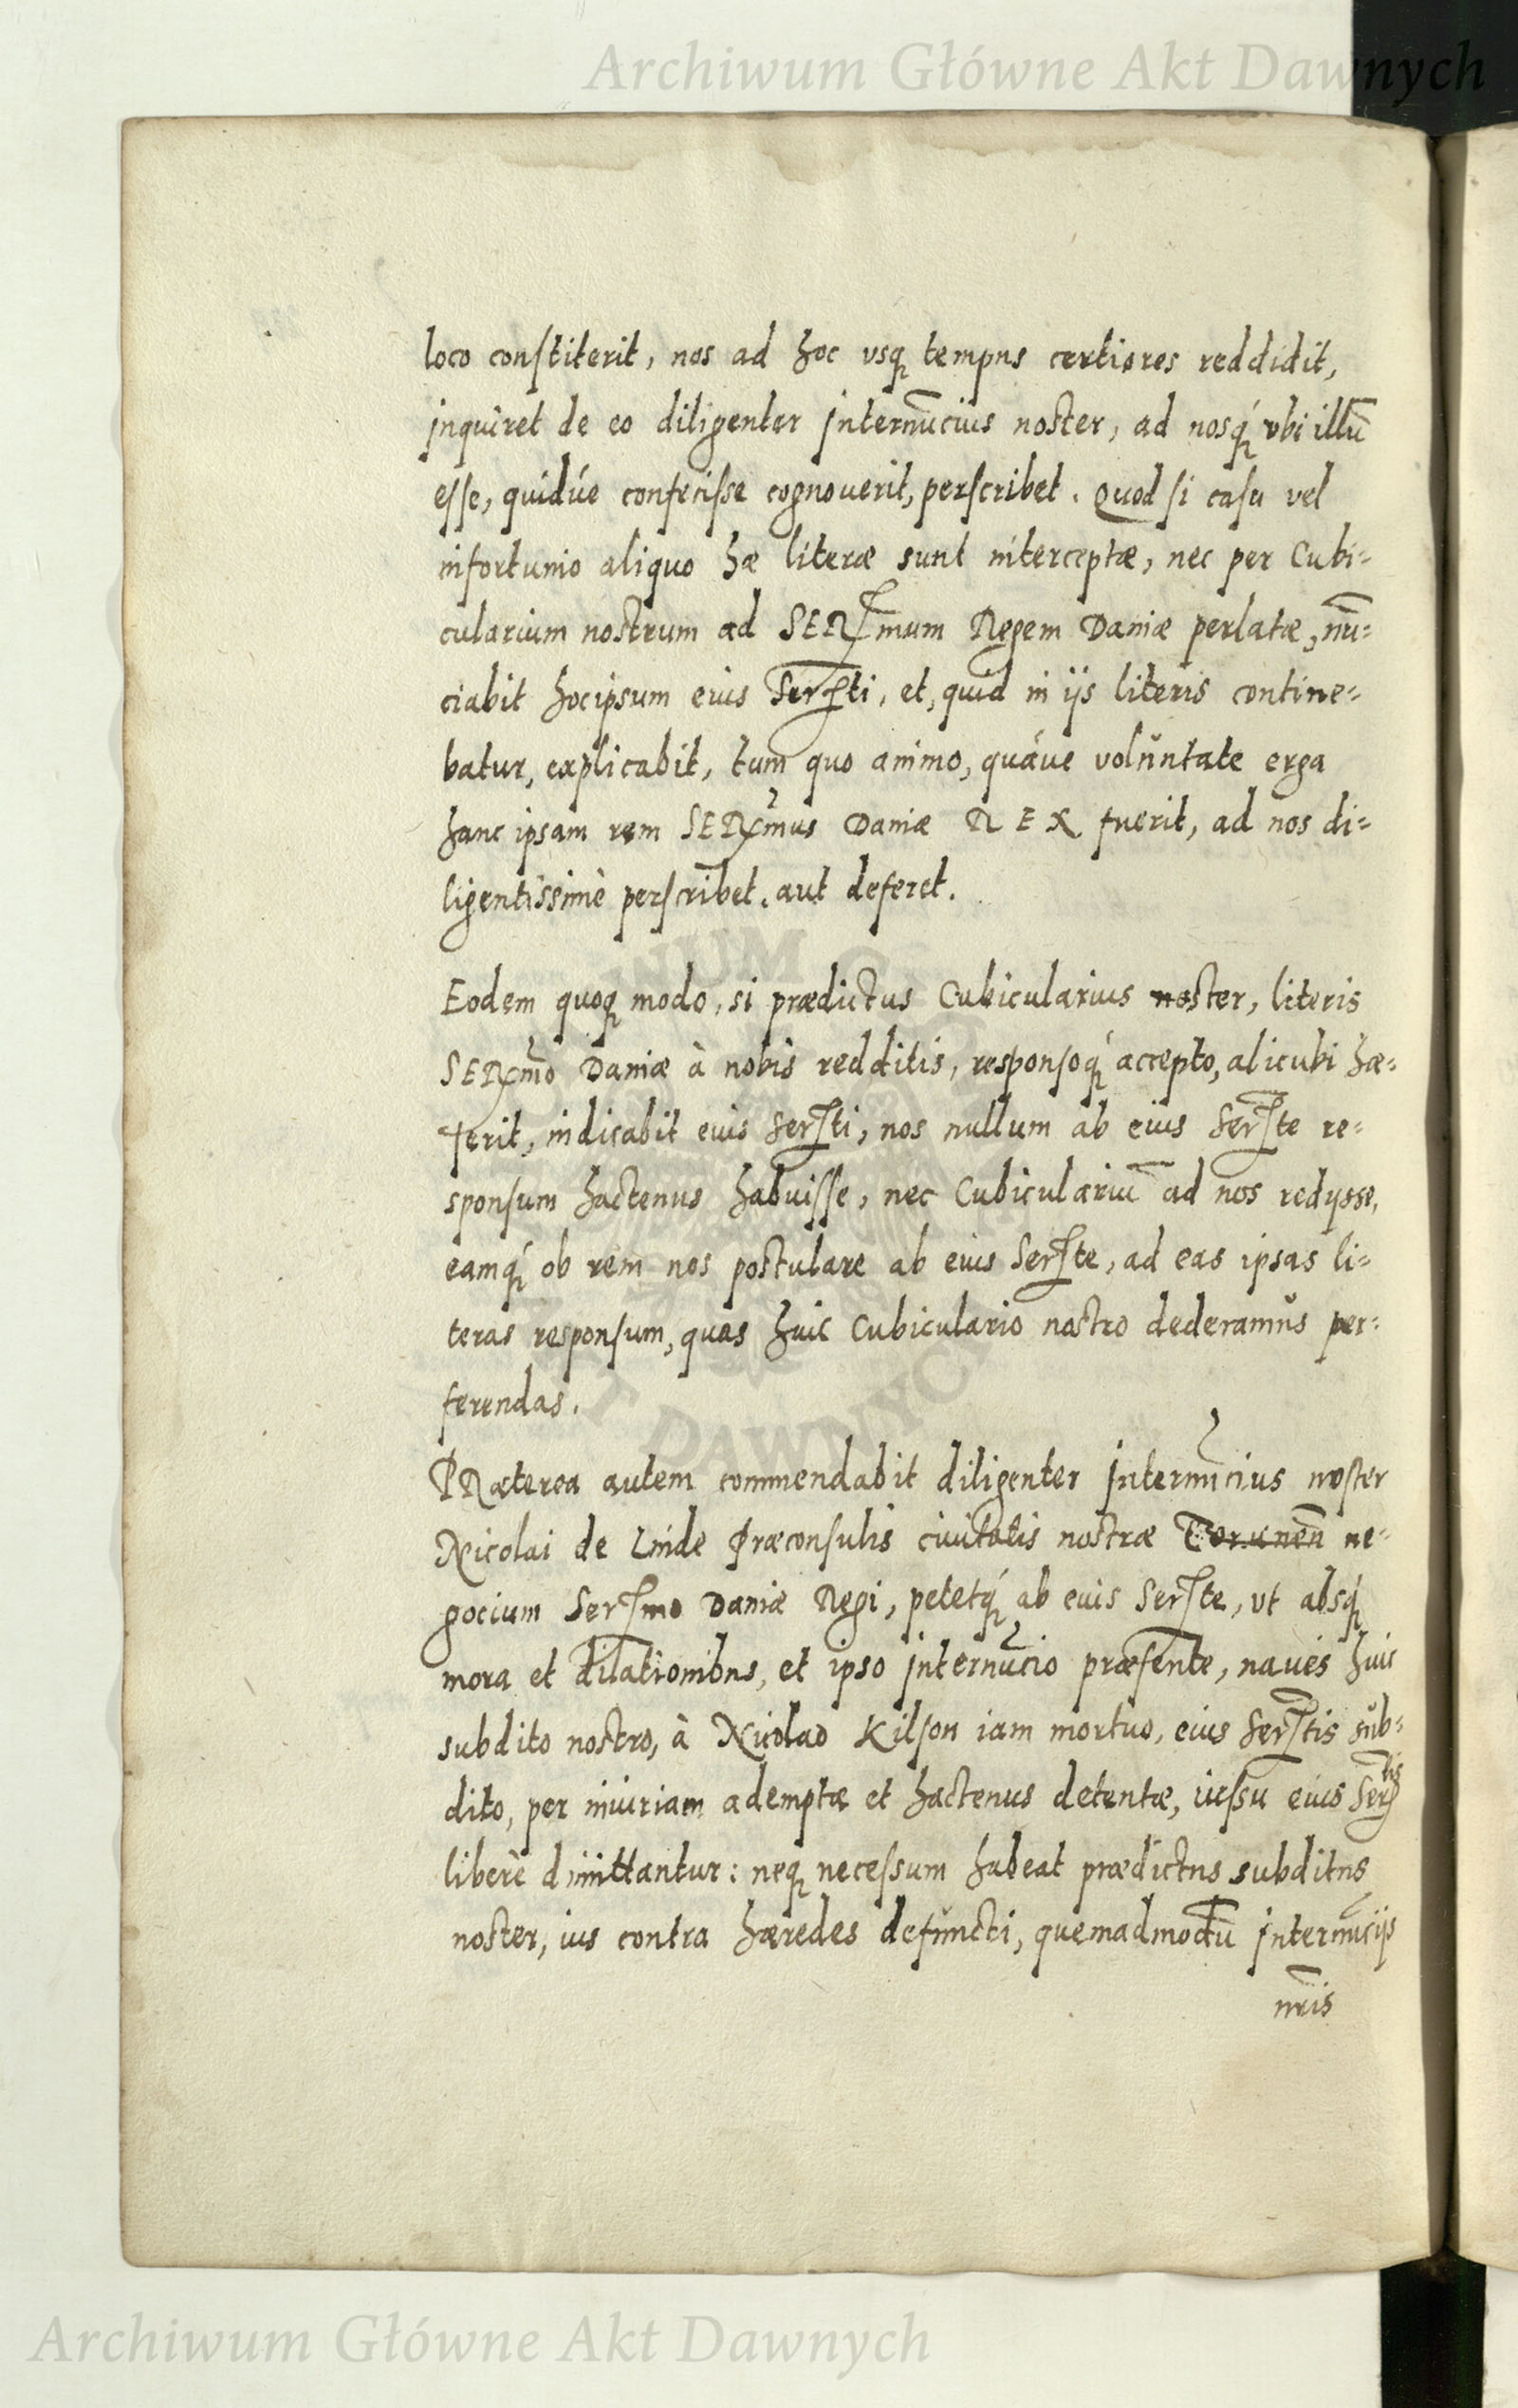 Archiwum Główne Akt Dawnych
loco constiterit, nos ad hoc vsq tempus certiores reddidit,
inquiret de eo diligenter internūcius noster, ad nosq́ vbi illū
esse, quidúe confecisse cognouerit, perscribet. Quod si casu vel
infortunio aliquo hæ literæ sunt interceptæ, nec per Cubi=
cularium nostrum ad SERmum Regem Daniæ perlatæ, nū=
ciabit hocipsum eius Serti, et, quid in ijs literis contine=
batur, explicabit, tum quo animo, quáue volŭntate erga
hanc ipsam rem SERmus Daniæ REX fuerit, ad nos di=
ligentissimè perscribet. aut deferet.
Eodem quoq modo, si prædictus Cubicularius noster, literis
SERmo Daniæ à nobis redditis, responsoq́ accepto, alicubi hæ=
serit, indicabit eius Serti, nos nullum ab eius Serte re=
sponsum hactenus habuisse, nec Cubiculariū ad nos redijsse,
eamq́ ob rem nos postulare ab eius Serte, ad eas ipsas li=
teras responsum, quas huic Cubiculario nostro dederamŭs per=
ferendas.
PRæterea autem commendabit diligenter internūcius noster
Nicolai de Linde Præconsulis ciuitatis nostræ Torunen̄ ne=
gocium Sermo Daniæ Regi, petetq́ ab eius Serte, vt absq
mora et dilationibus, et ipso internūcio præsente, naues huic
subdito nostro, à Nicolao Kilson iam mortuo, eius Sertis sŭb=
dito, per iniuriam ademptæ et hactenus detentæ, iussu eius Sertis
liberè dimittantur: neq necessum habeat prædictus subditus
noster, ius contra hæredes defŭncti, quemadmodū internūcijs
nr̄is
DAWNYCH
Archiwum Główne Akt Dawnych